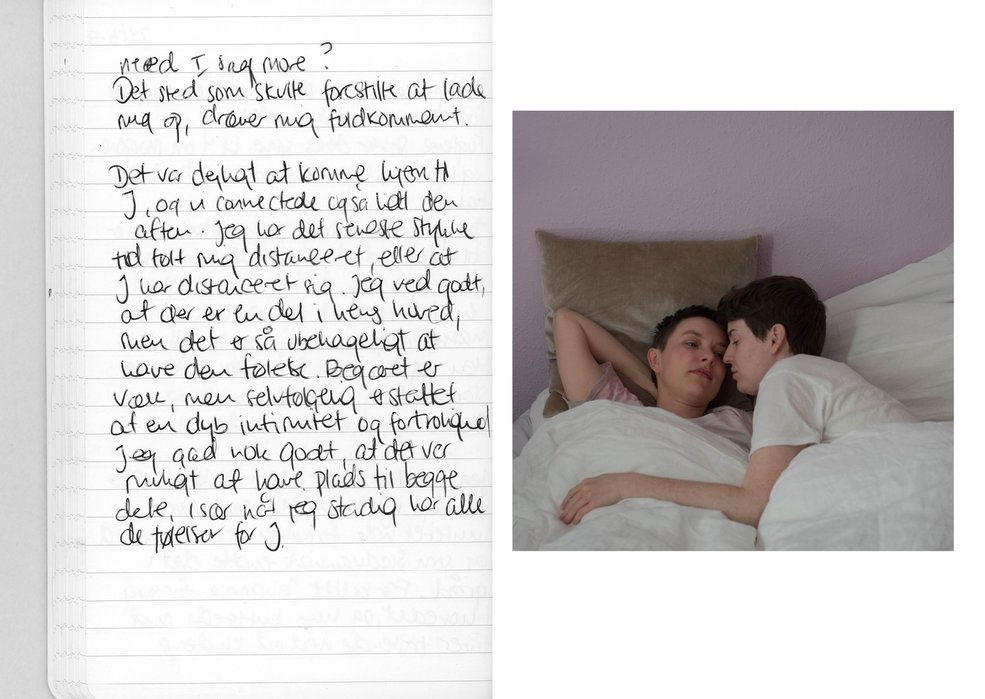 need I say more?
Det sted som skulle forestille at lade
mig op, dræner mig fuldkomment.
Det var dejligt at komme hjem til
J, og vi connectede også lidt den
aften. Jeg har det seneste stykke
tid følt mig distanceret, eller at
J har distanceret sig. Jeg ved godt,
at der er en del i hens hoved,
men det er så ubehageligt at
have den følelse. Begæret er
væk, men selvfølgelig erstattet
af en dyb intimitet og fortrolighed
Jeg gad nok godt, at det var
muligt at have plads til begge
dele, især når jeg stadig har alle
de følelser for J.